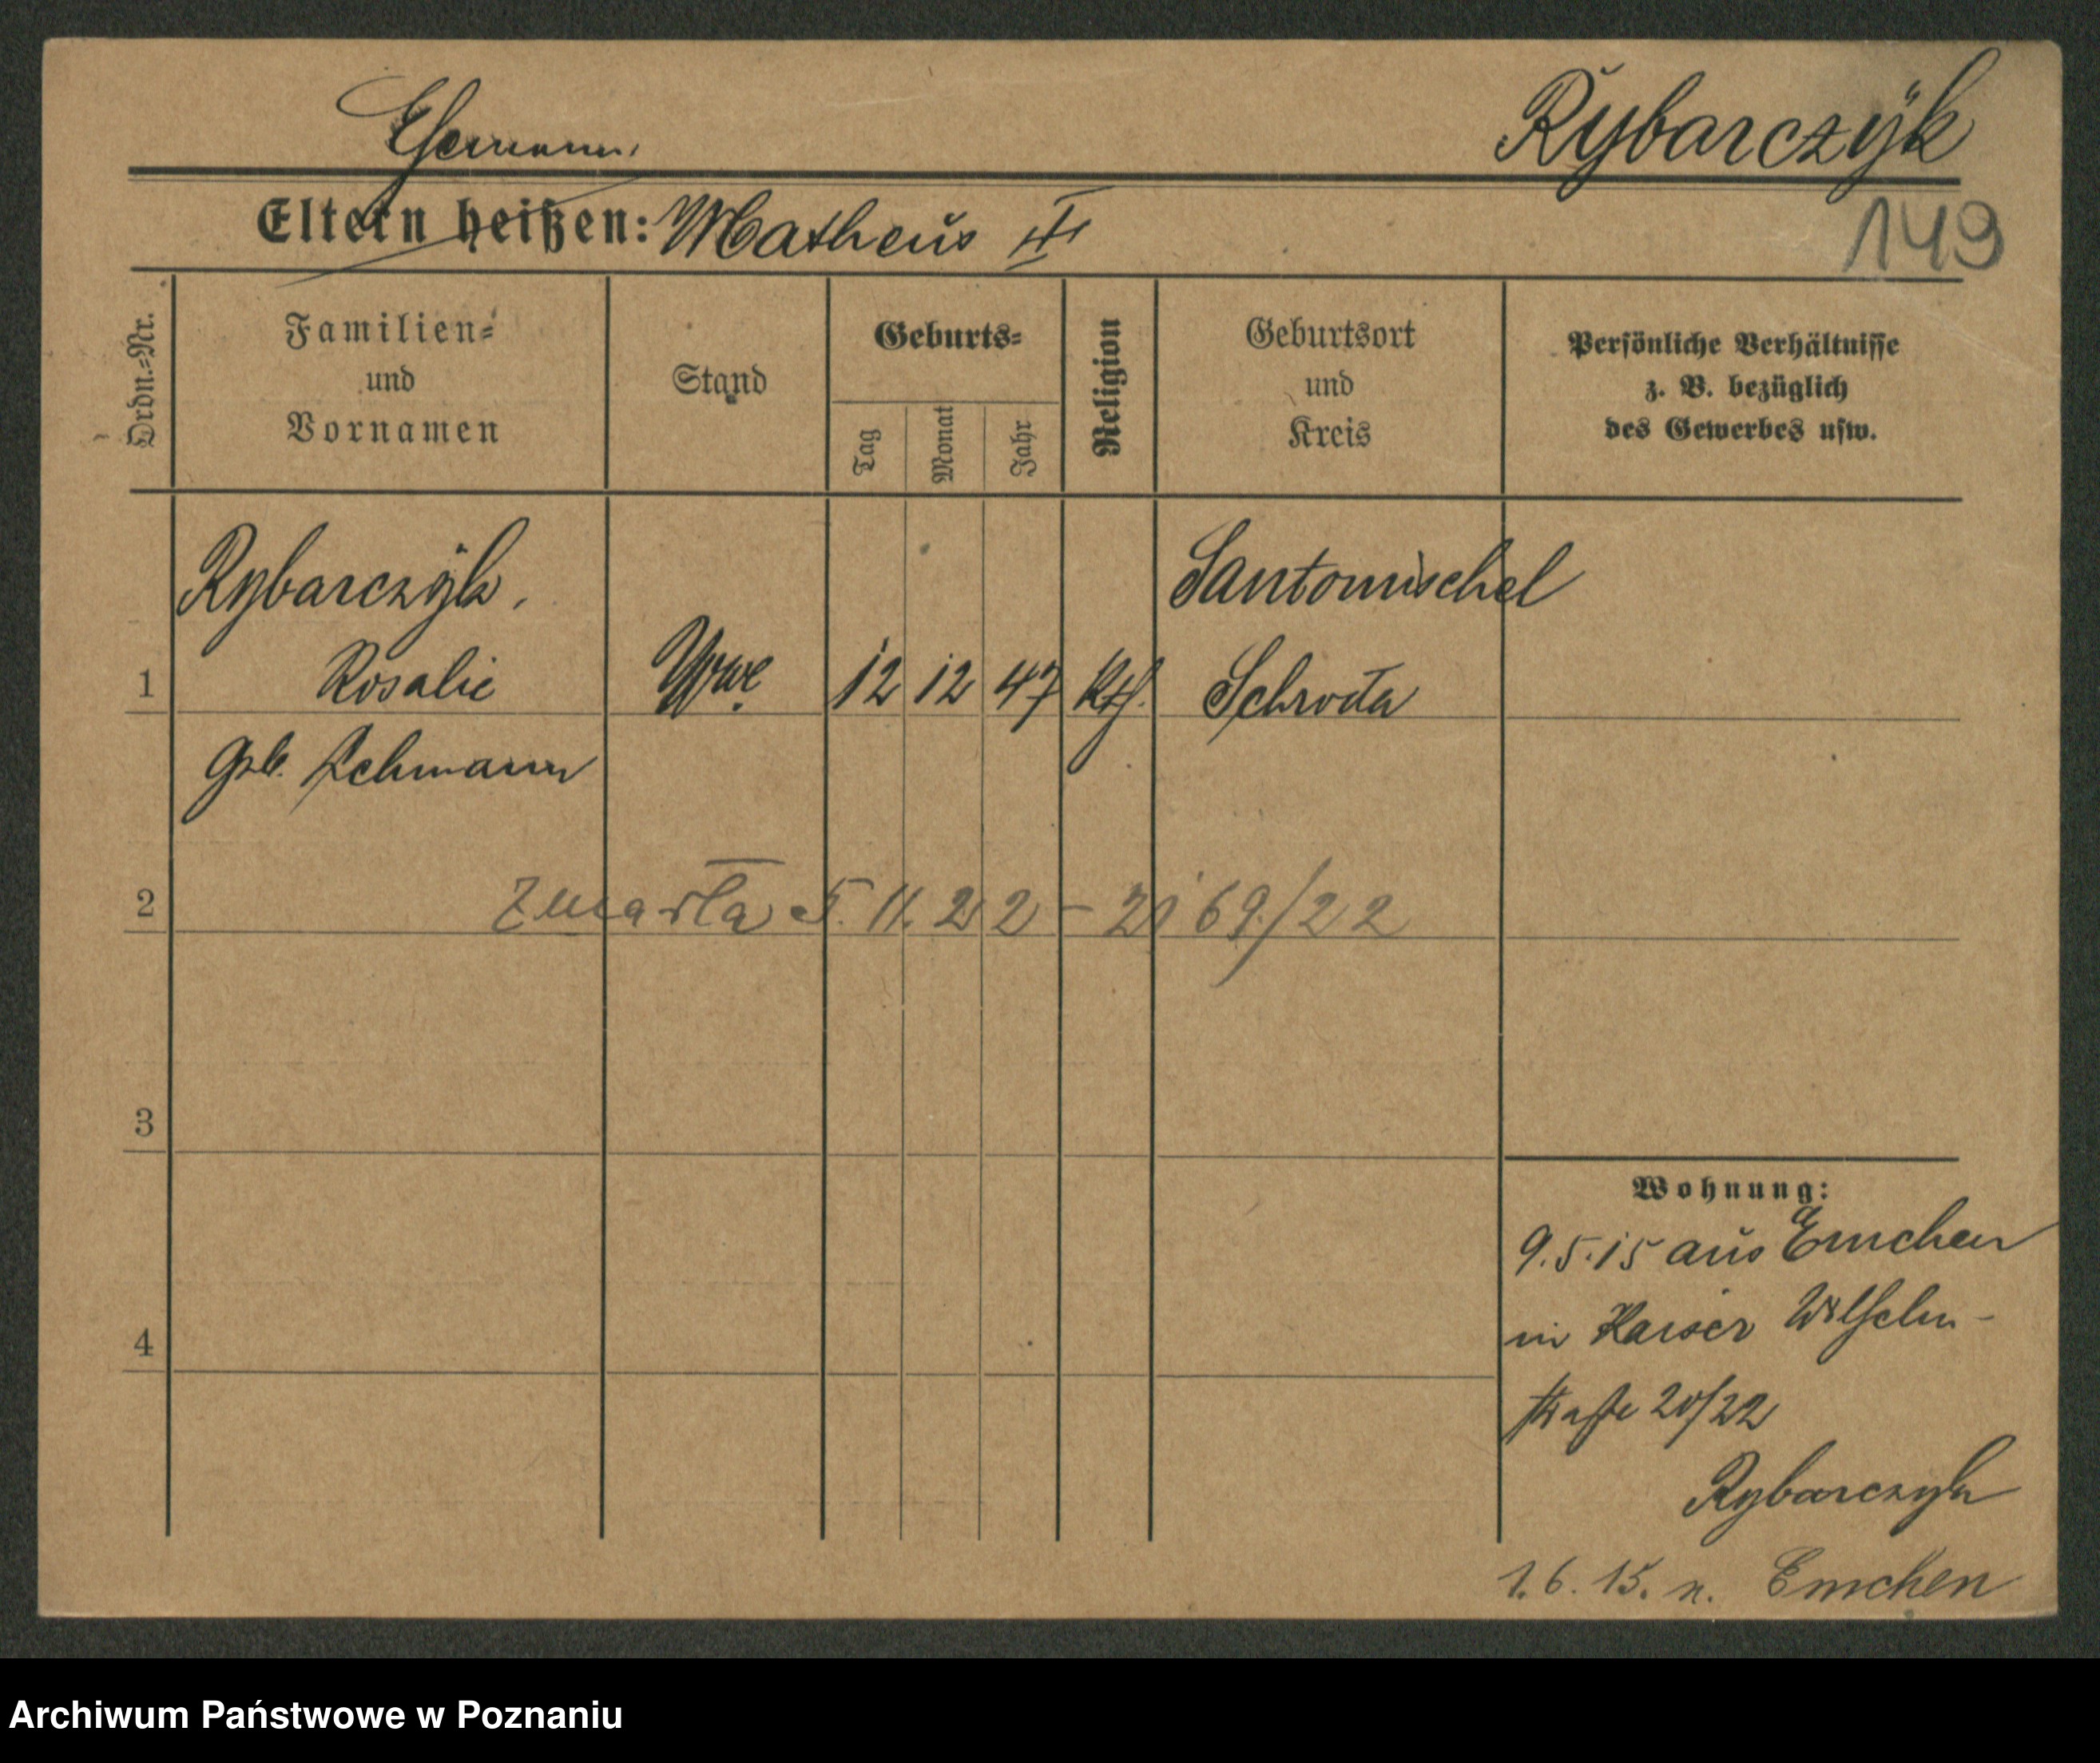 Ehemann Rybarczÿk
Eltern heißen: Matheus II
149
Ordn.=Nr.
Familien=
und
Vornamen
Stand
Geburts=
Tag
Monat
Jahr
Religion
Geburtsort
und
Kreis
Persönliche Verhältnisse
z. B. bezüglich
des Gewerbes usw.
Rybarczÿk,
Santomischel
1 Rosalie Wwe. 12 12 47 kth. Schroda
geb. Lehmann
2 zmarła 5. 11. 22 – 2169/22
3
4
Wohnung:
9.5.15 aus Emchen
in Kaiser Wilhelm-
straße 20/22
Rybarczyk
1.6.15. n. Emchen
Archiwum Państwowe w Poznaniu